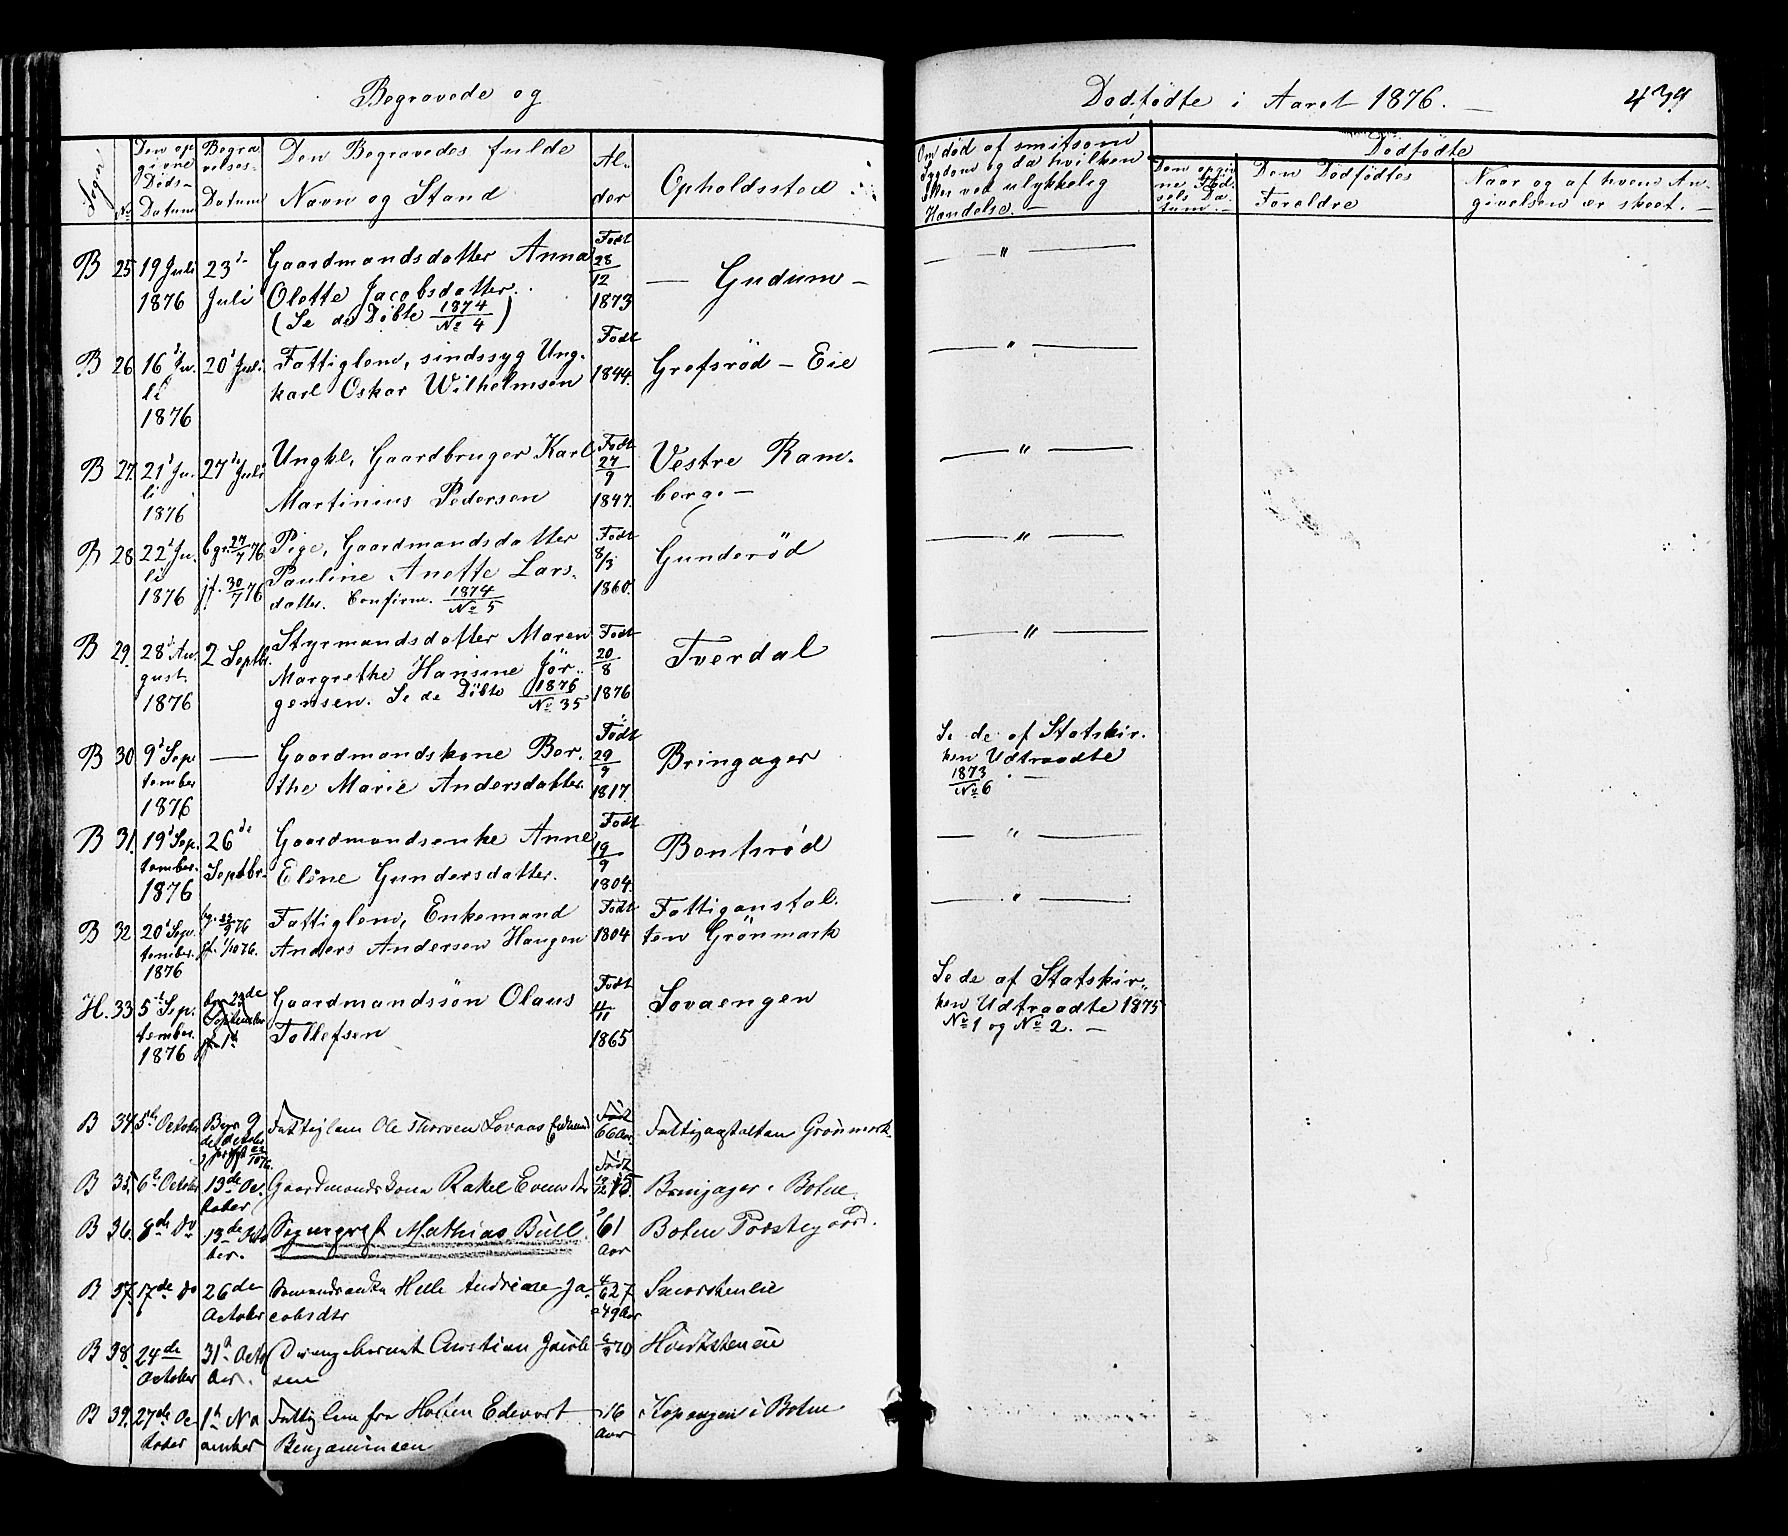 Begravede og
Dødfødte i Aaret 1876. —
439
Sogn.
No
Den op
givne
Døds-
Datum
Begra
velses-
Datum
Den Begravedes fulde
Navn og Stand
Al-
der
Opholdssted
Om død af smitsom
Sygdom og da hvilken
eller ved ulykkelig
Hændelse. —
Dødfødte
Den opgiv
ne Fød-
sels Da-
tum. —
Den Dødfødtes
Forældre
Naar og af hvem An-
givelsen er skeet. —
B 25 19 Juli 1876
23de Juli
Gaardmandsdatter Anna
Olette Jacobsdatter.
(Se de Døbte 1874 No 4)
Født 28/12 1873
— Gudum —
— " —
B 26 16de Ju-
li
1876
20de Juli
Fattiglem, sindssyg Ung-
karl Oskar Wilhelmsen
Født 1844.
Grefsrød — Eie
— " —
B 27. 21de Ju-
li
1876
27de Juli
Ungkl, Gaardbruger Karl
Martinius Pedersen
Født 27/9 1847.
Vestre Ram-
berg. —
— " —
B 28 22de Ju-
li
1876
bgr. 27/7 76
jf. 30/7 76
Pige, Gaardmandsdatter
Pauline Anette Lars-
datter. Confirm. 1874 No 5
Født 8/3 1860.
Gunderød
— " —
B 29. 28de Au-
gust
1876
2 Septbr.
Styrmandsdatter Maren
Margrethe Hansine Jør-
gensen. Se de Døbte 1876 No 35
Født 20/8 1876
Tverdal
— " —
B 30 9de Sep
tember
1876
—
Gaardmandskone Ber-
the Marie Andersdatter.
Født 29/9 1817.
Bringager
Se de af Statskir-
ken Udtraadte
1873 No 6 . —
B 31. 19de Sep.
tember.
1876
26de
Septbr.
Gaardmandsenke Anne
Eline Gundersdatter.
Født 19/9 1804.
Bentsrød
— " —
B 32 20de Sep.
tember.
1876
76
jf. 1/10 76.
Fattiglem, Enkemand
Anders Andersen Haugen
Født 1804
Fattiganstal-
ten Grönmark
— " —
H. 33 5te Sep.
tember.
1876
23de
September
Gaardmandssön Olaus
Tollefsen
Født 11/11 1865
Sovaengen
Se de af Statskir-
ken Udtraadte 1875
No 1 og No 2. —
B 34. 5te October
Begr 9
de October
Fattiglem Ole Thorsen Lovaas
66 Aar.
Fattiganstalten Grönmark
B 35. 6te October
13de Oc-
tober
Gaardmandskone Rakel
Født
Bringager i Botne.
B 36. 8de Do
13de Octo
ber.
Sogneprest Mathias Bull
61
Aar
Botne Præstegaard.
B 37. 17de Do
26de
October
Helle Andrine Ja-
cobsdtr
49 Aar
B 38. 24de
October
31te Octo
ber.
Christian Jacob
sen
B 39. 27de Oc
tober
1te No
vember
Fattiglem fra Edvart
Benjaminsen
16
Aar
Kopengen i Botne